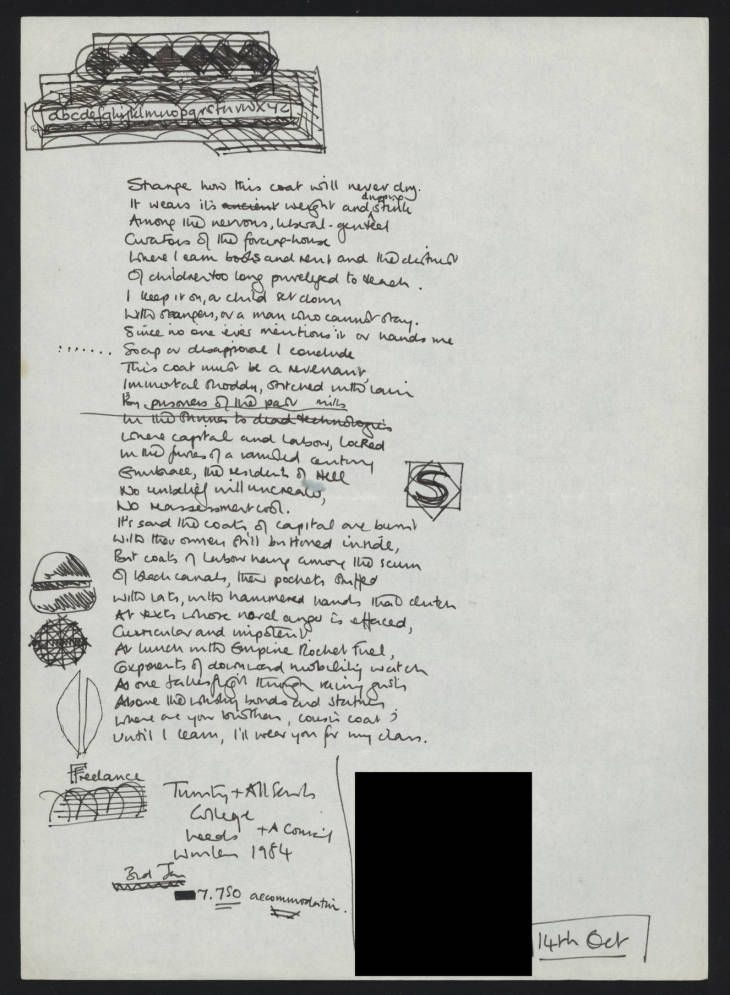 abcdefghijklmnopqrstuvwxyz
Strange how this coat will never dry.
dripping
It wears its ancient weight and stink
Among the nervous, liberal-genteel
Curators of the forcing-house
Where I earn books and rent and the distrust
Of children too long privileged to teach.
I keep it on, a child set down
With strangers, or a man who cannot stay.
Since no one ever mentions it or hands me
Soap or disapproval I conclude
This coat must be a revenant,
Immortal shoddy, stitched with rain
By prisoners of the past mills
In the to dead technologies
Where capital and labour, locked
In the furies of a ruined century
Embrace, the residents of Hell
No unbelief will uncreate,
No reassessment cool.
It's said the coats of capital are burnt
With their owners still buttoned inside,
But coats of labour hang among the scum
Of black canals, their pockets stuffed
With rats, with hammered hands that clutch
At texts whose novel anger is effaced,
Curricular and impotent.
At lunch with Empire Rocket Fuel,
Exponents of downward mobility watch
As one takes flight through racing gusts
Above the whisky bonds and statues
Where are your brothers, cousin coat?
Until I learn, I'll wear you for my class.
S
Freelance
Trinity + All Saints
College
Leeds + A Council
Winter 1984
3rd Jan
7.750 accommodation.
14th Oct